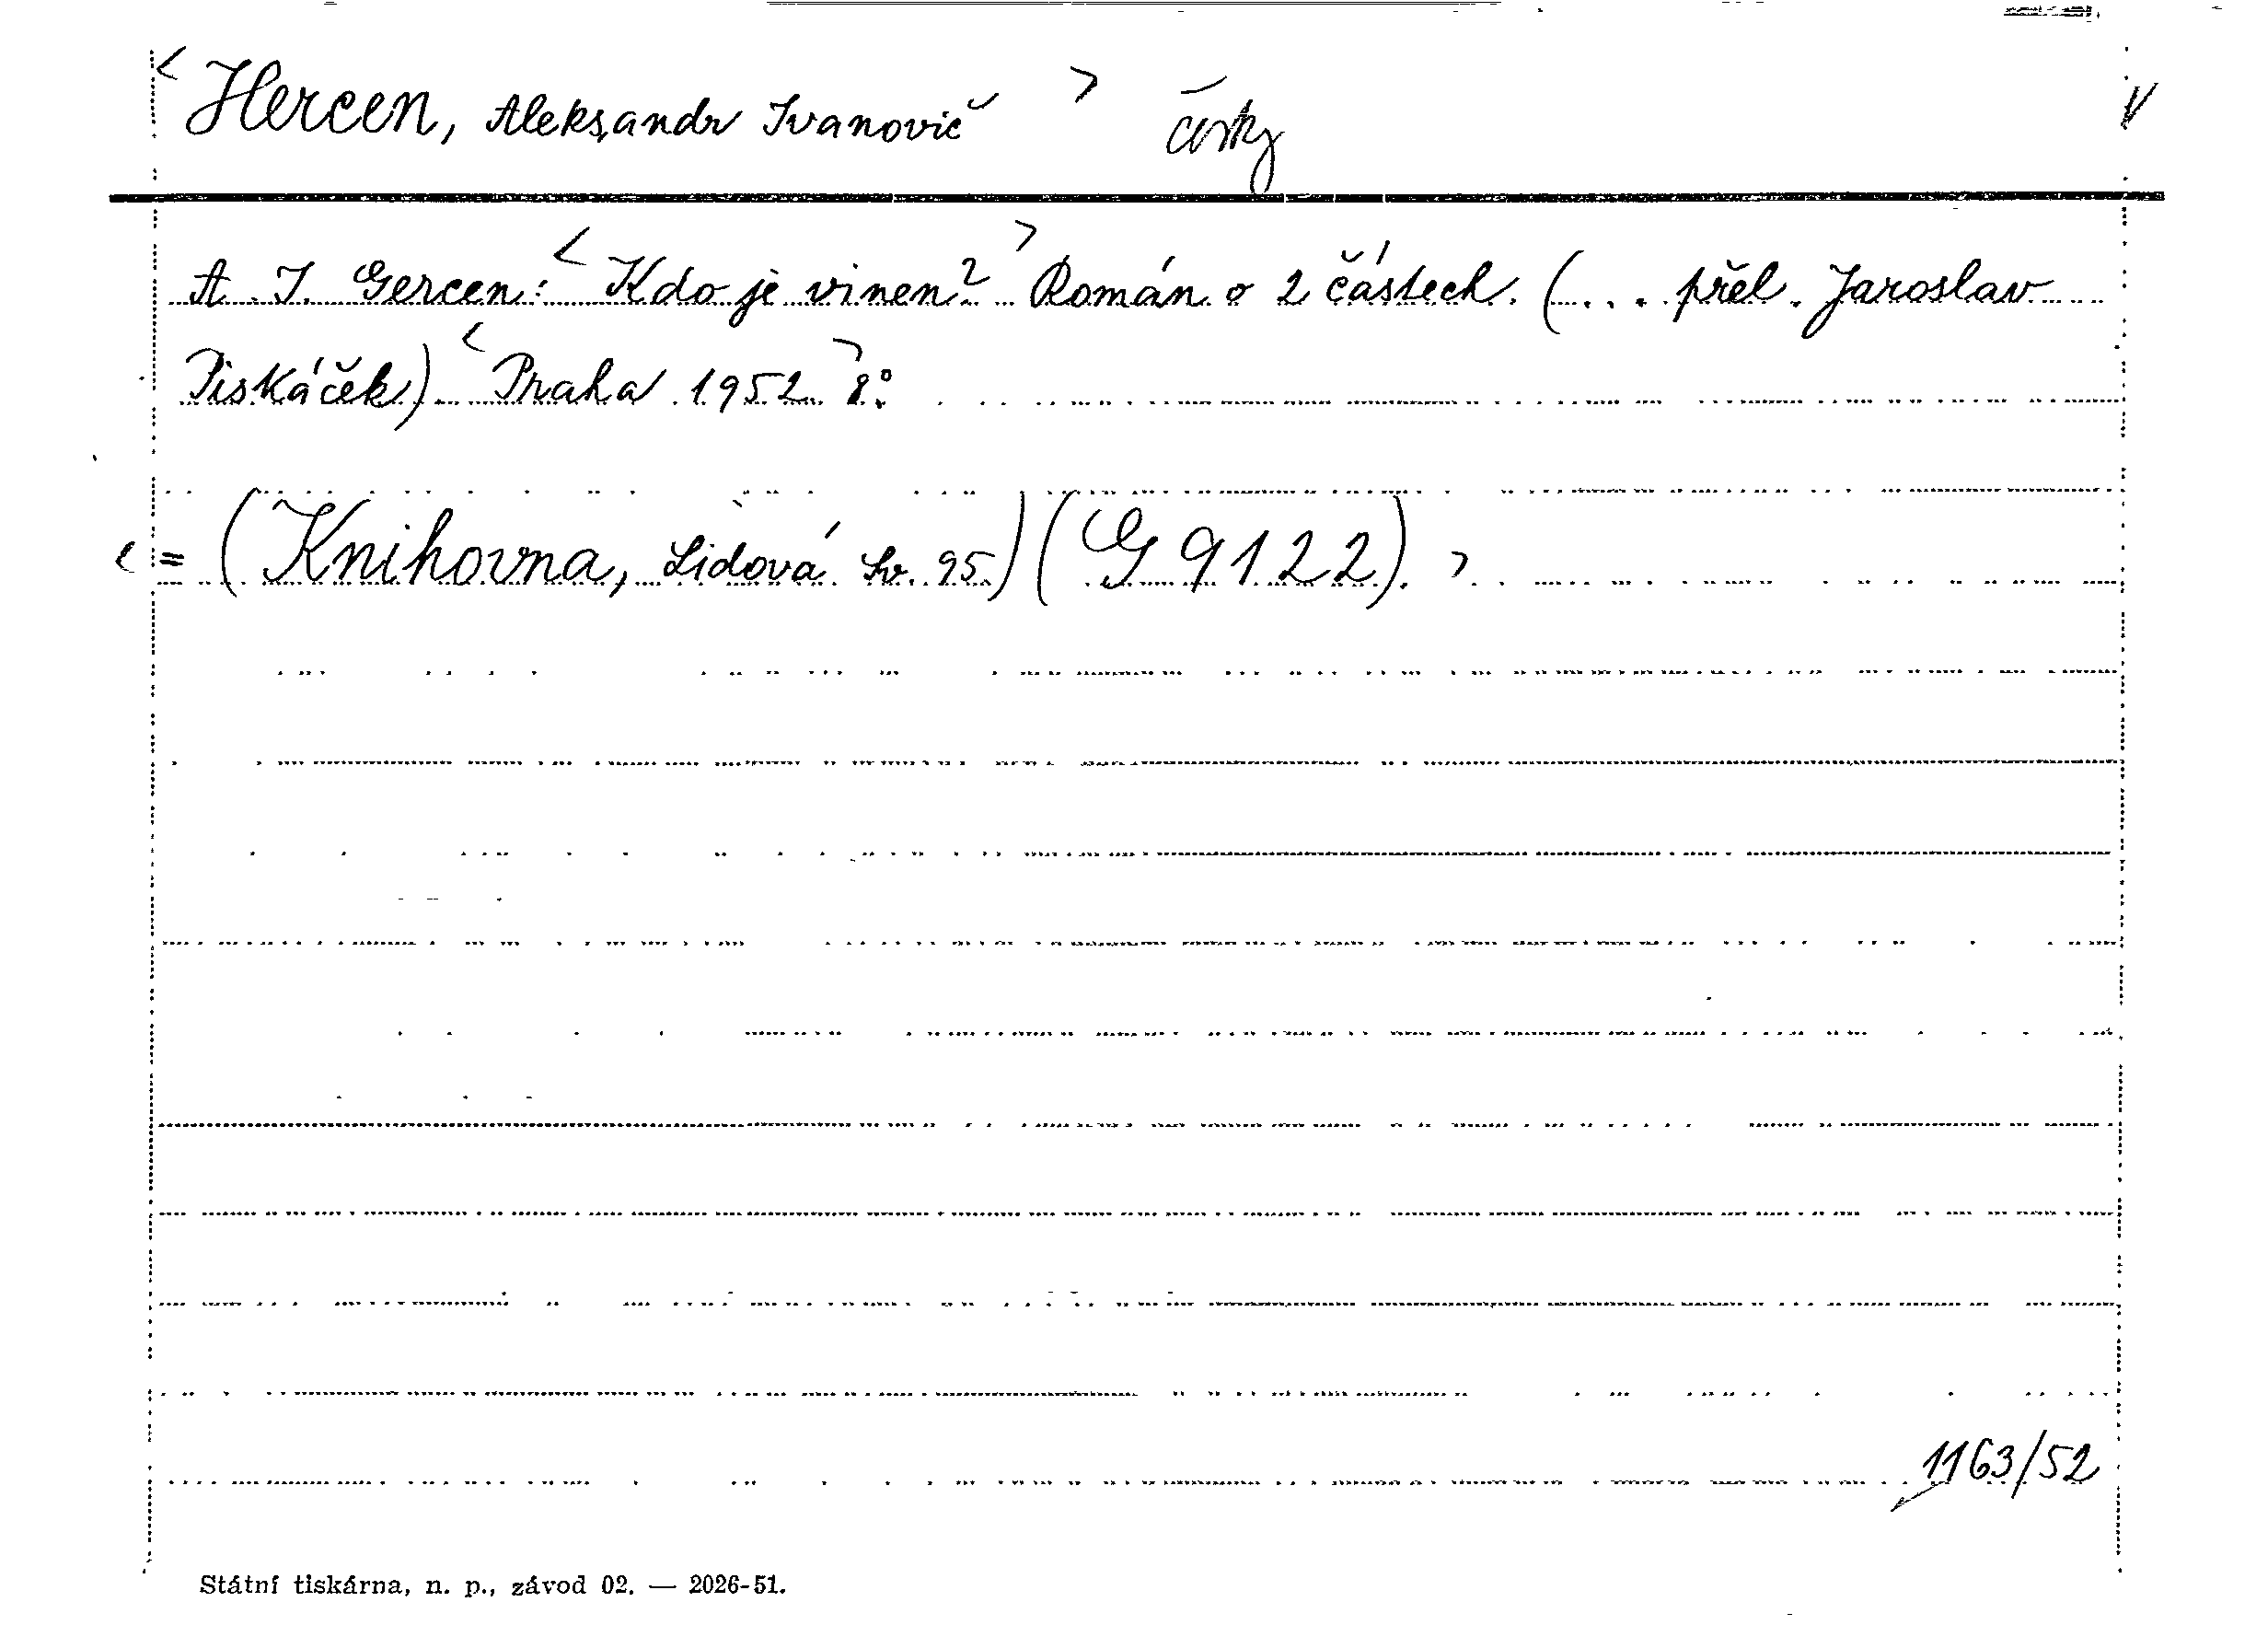 < Hercen, Aleksandr Ivanovič > česky V
A. I. Gercen: < Kdo je vinen? > Román o 2 částech. (... přel. Jaroslav
Piskáček) < Praha 1952 > 8°
< = (Knihovna, Lidová Sv. 95) (G 9122). >
1163/52
Státní tiskárna, n. p., závod 02. — 2026-51.